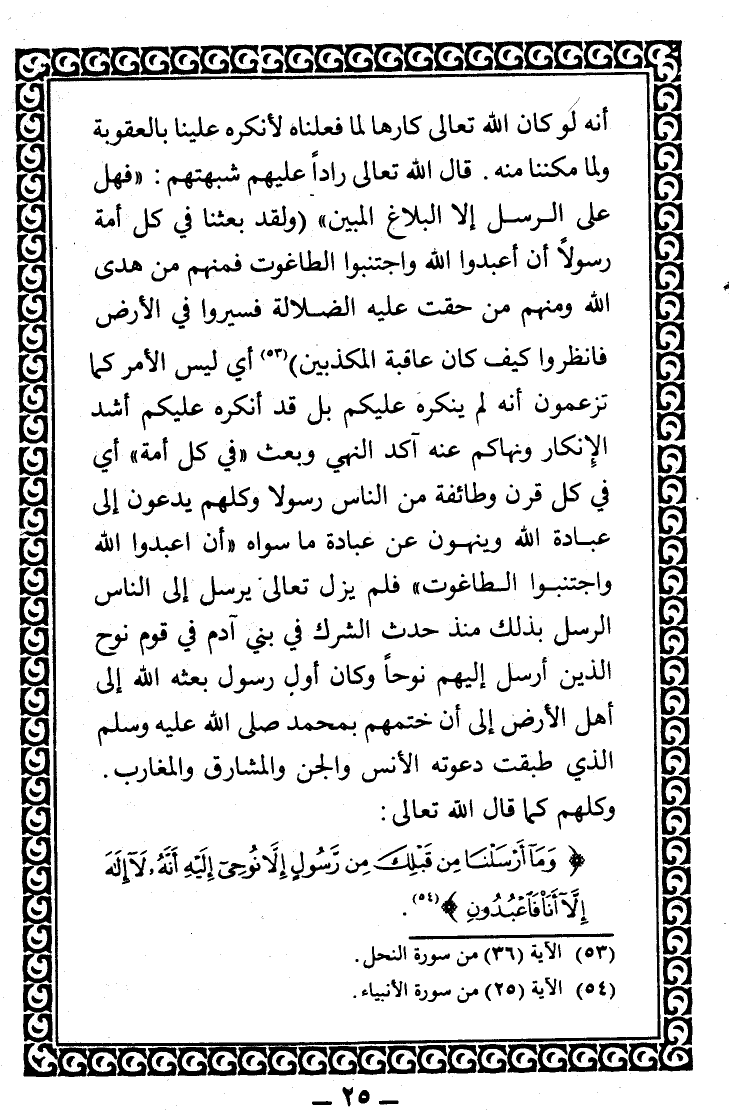 أنه لو كان الله تعالى كارها لما فعلناه لأنكره علينا بالعقوبة
ولما مكننا منه . قال الله تعالى راداً عليهم شبهتهم : «فهل
على الرسل إلا البلاغ المبين» (ولقد بعثنا في كل أمة
رسولاً أن أعبدوا الله واجتنبوا الطاغوت فمنهم من هدى
الله ومنهم من حقت عليه الضلالة فسيروا في الأرض
فانظروا كيف كان عاقبة المكذبين)(٥٣) أي ليس الأمر كما
تزعمون أنه لم ينكره عليكم بل قد أنكره عليكم أشد
الإنكار ونهاكم عنه آكد النهي وبعث «في كل أمة» أي
في كل قرن وطائفة من الناس رسولا وكلهم يدعون إلى
عبادة الله وينهون عن عبادة ما سواه «أن اعبدوا الله
واجتنبوا الطاغوت» فلم يزل تعالى يرسل إلى الناس
الرسل بذلك منذ حدث الشرك في بني آدم في قوم نوح
الذين أرسل إليهم نوحاً وكان أول رسول بعثه الله إلى
أهل الأرض إلى أن ختمهم بمحمد صلى الله عليه وسلم
الذي طبقت دعوته الأنس والجن والمشارق والمغارب .
وكلهم كما قال الله تعالى :
﴿ وَمَآ أَرْسَلْنَا مِن قَبْلِكَ مِن رَّسُولٍ إِلَّا نُوحِىٓ إِلَيْهِ أَنَّهُۥ لَآ إِلَٰهَ
إِلَّآ أَنَا۠ فَٱعْبُدُونِ ﴾(٥٤) .
(٥٣) الآية (٣٦) من سورة النحل .
(٥٤) الآية (٢٥) من سورة الأنبياء .
ــ ٢٥ ــ